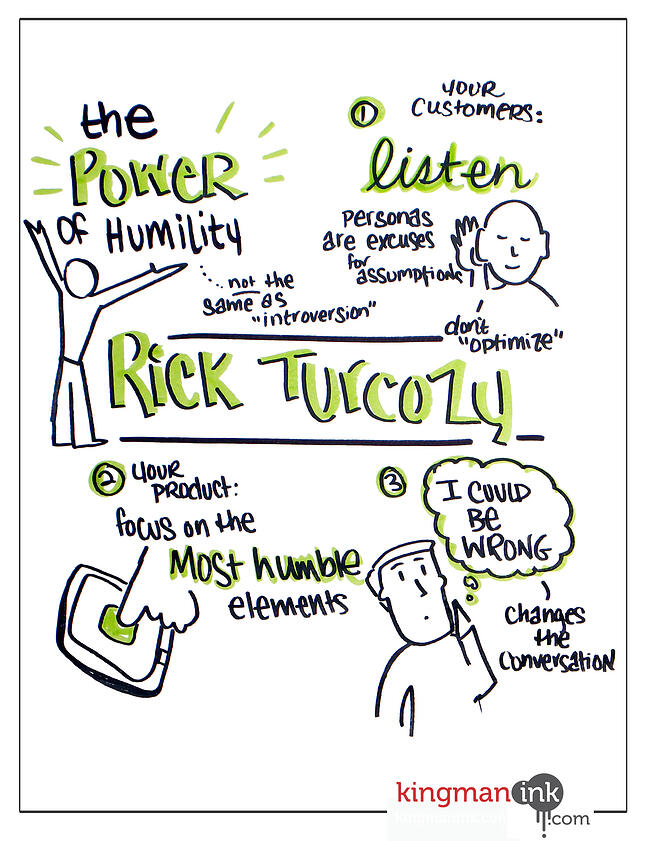 the
POWER
OF HUMILITY
not the
same as
"introversion"
① YOUR
CUSTOMERS:
listen
Personas
are excuses
for
assumptions
don't
"optimize"
RICK TURCOZY
② YOUR
PRODUCT:
focus on the
Most humble
elements
③
I COULD
BE
WRONG
changes
the
conversation
kingman ink
.com